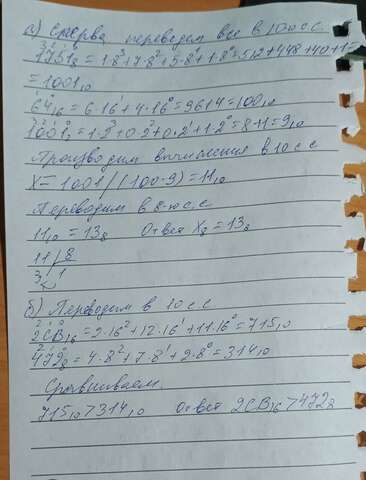 а) сперва переводим все в 10-ю с.с.
1751₈ = 1·8³+7·8²+5·8¹+1·8⁰=512+448+40+1=
= 1001₁₀
64₁₆ = 6·16¹+4·16⁰=96+4=100₁₀
1001₂=1·2³+0·2²+0·2¹+1·2⁰=8+1=9₁₀
Производим вычисления в 10 с.с
X= 1001/(100-9)=11₁₀
Переводим в 8-ю с.с.
11₁₀ = 13₈ Ответ X₈ = 13₈
11 8
3 1
б) Переводим в 10 с.с
2CB₁₆ = 2·16²+12·16¹+11·16⁰=715₁₀
472₈ = 4·8²+7·8¹+2·8⁰=314₁₀
Сравниваем
715₁₀>314₁₀ Ответ 2CB₁₆>472₈